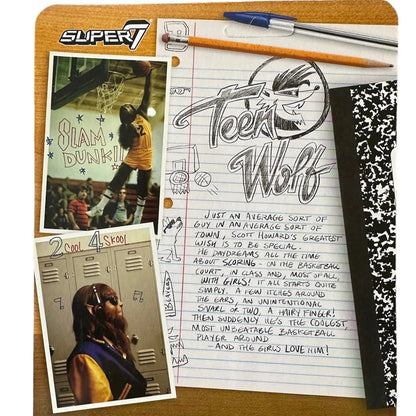 SUPER7
Teen
Wolf
SLAM
DUNK!!
2 COOL 4 SKOOL
JUST AN AVERAGE SORT OF
GUY IN AN AVERAGE SORT OF
TOWN, SCOTT HOWARD'S GREATEST
WISH IS TO BE SPECIAL.
HE DAYDREAMS ALL THE TIME
ABOUT SCORING - ON THE BASKETBALL
COURT, IN CLASS AND, MOST OF ALL,
WITH GIRLS! IT ALL STARTS QUITE
SIMPLY. A FEW ITCHES AROUND
THE EARS, AN UNINTENTIONAL
SNARL OR TWO, A HAIRY FINGER!
THEN SUDDENLY HE'S THE COOLEST,
MOST UNBEATABLE BASKETBALL
PLAYER AROUND
-AND THE GIRLS LOVE HIM!